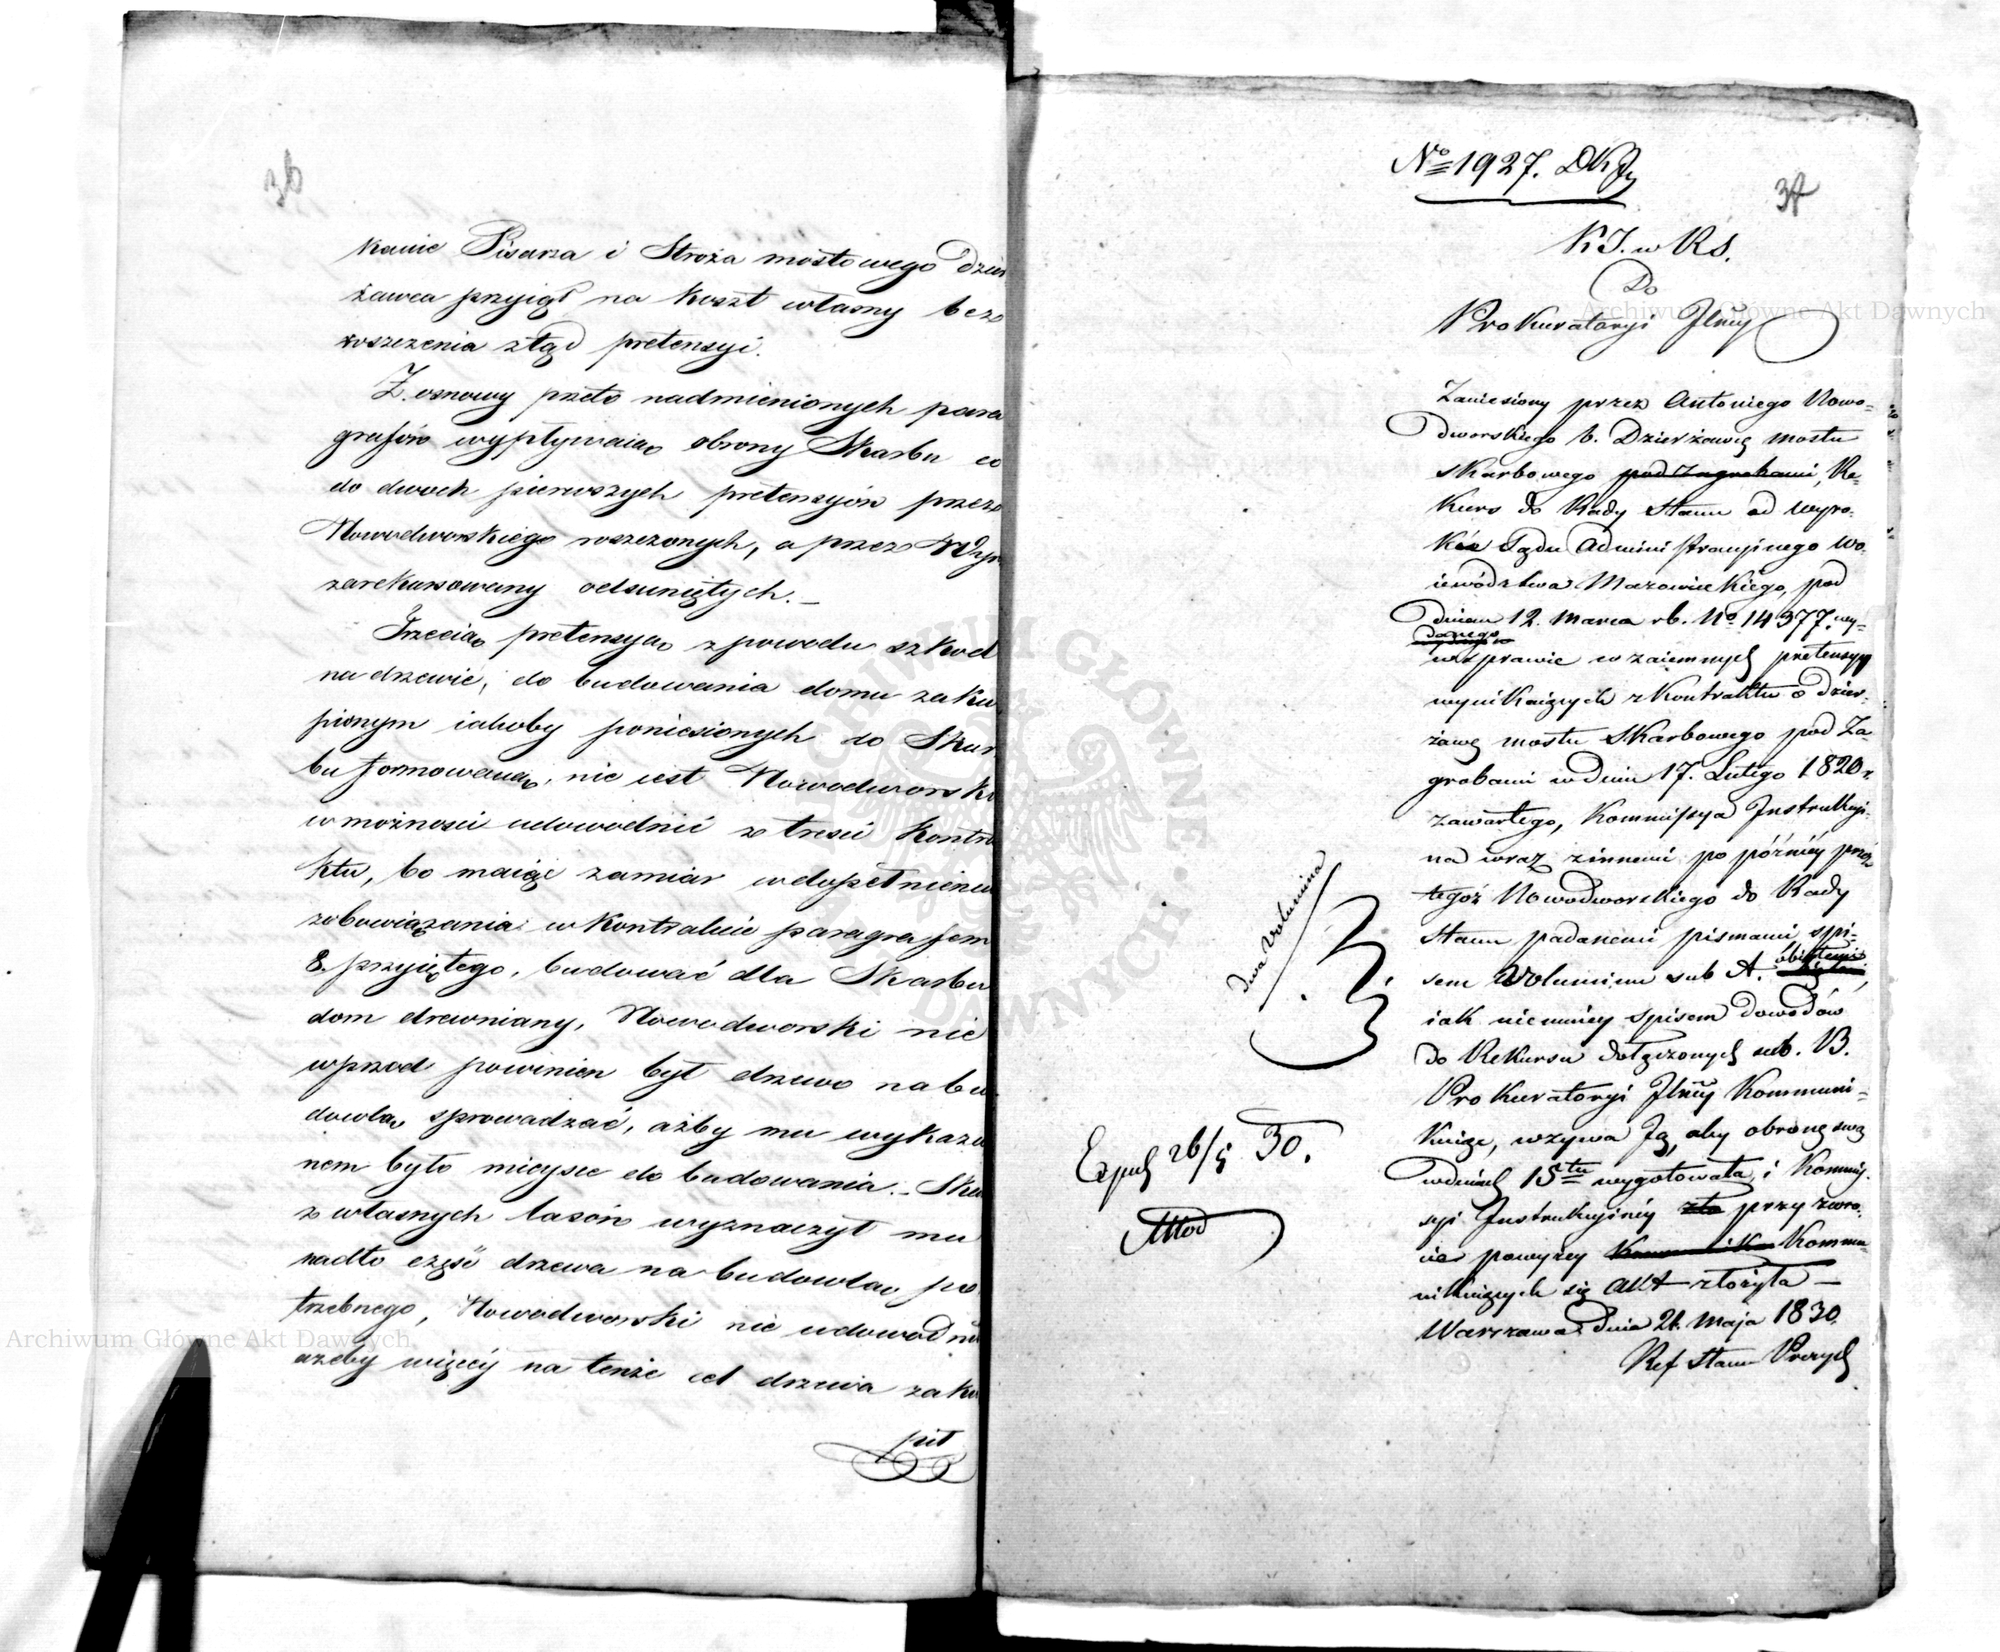 36
kanie Pisarza i Stróża mostowego Dzier
żawca przyiął na koszt własny bez
roszczenia ztąd pretensyi.
Z osnowy przeto nadmienionych para
grafów wypływaią obrony Skarbu co
do dwóch pierwszych pretensyów przez
Nowodworskiego roszczonych, a przez Wyr
zarekursowany odsuniętych. _
Trzecia pretensya z powodu szkod
na drzewie, do budowania domu zaku
pionym iakoby poniesionych do Skar
bu formowana, nie iest Nowodworski
w możności udowodnić z treści Kontra
ktu, bo maiąc zamiar w dopełnieniu
zobowiązania w Kontrakcie paragrafem
8. przyiętego, budować dla Skarbu
dom drewniany, Nowodworski nie
wprzod powinien był drzewo na bu
dowlą sprowadzać, ażby mu wykaza
nem było mieysce do budowania. _ Ska
z własnych lasów wyznaczył mu
nadto część drzewa na budowlą po
trzebnego, Nowodworski nie udowodnił
ażeby więcéj na tenże cel drzewa zaku
pił
No 1927. DKJ
37
K J. w R S.
Do
Prokuratoryi Jlnéy
Zaniesiony przez Antoniego Nowo-
Dworskiego b. Dzierżawcę mostu
skarbowego pod Zagrobami, Re-
kurs do Rady Stanu od wyro-
ku Sądu Administracyjnego Wo-
iewództwa Mazowieckiego, pod
Dniem 12. Marca rb. No 14977. wy-
danego
w sprawie wzaiemnych pretensyy
wynikaiących z Kontraktu o dzier-
żawę mostu Skarbowego pod Za
grobami w dniu 17. Lutego 1820 r.
zawartego, Kommissya Instrukcyi-
na wraz z innemi po późniéy przez
tegoż Nowodworskiego do Rady
Stanu podanemi pismami spi-
sem Volumimu sub A. obiętemi
iak niemniéy spisem dowodów
do Rekursu dołączonych sub. B.
Prokuratoryi Jlnéy Kommuni-
kuiąc, wzywa Ją, aby obronę swą
w dniach 15tu wygotowała, i Kommis-
syi Instrukcyinéy przy zwro-
cie powyżéy Kommu
nikuiących się Akt złożyła —
Warszawa dnia 21. Maja 1830.
Ref Stanu Prezyd
dwa Volumina
Exped 26/5 30.